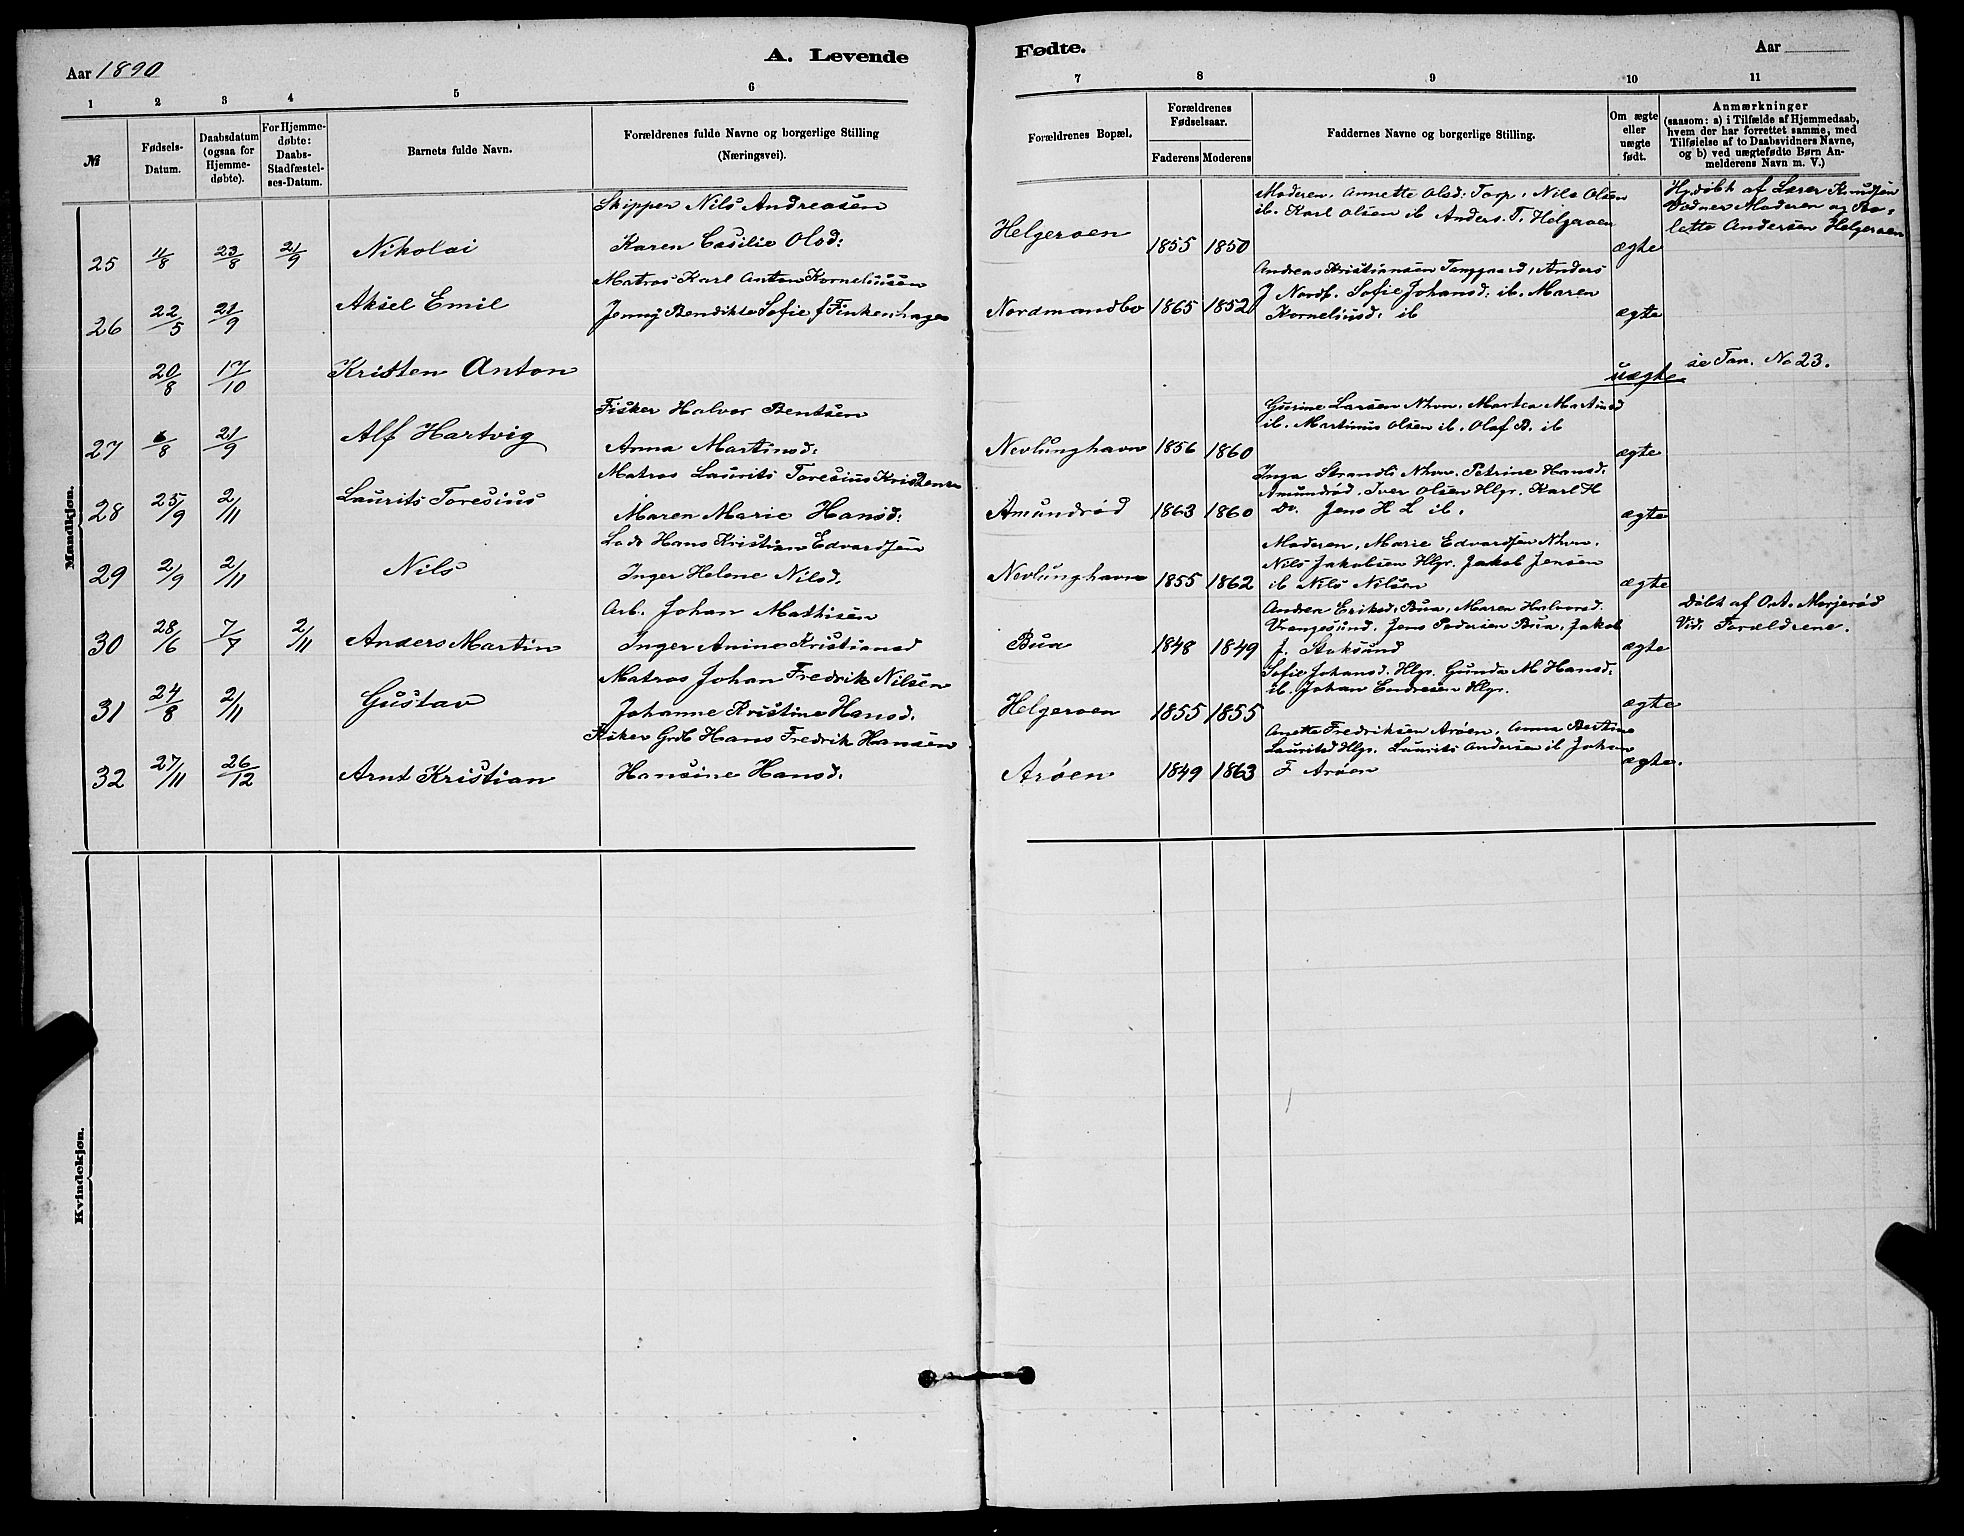 Aar 1890
A. Levende
Fødte.
Aar
1 2 3 4 5 6
7 8 9 10 11
№
Fødsels-Datum.
Daabsdatum (ogsaa for Hjemme-døbte).
For Hjemme-døbte: Daabs-Stadfæstel-ses-Datum.
Barnets fulde Navn.
Forældrenes fulde Navne og borgerlige Stilling (Næringsvei).
Forældrenes Bopæl.
Forældrenes Fødselsaar.
Faderens Moderens
Faddernes Navne og borgerlige Stilling.
Om ægte eller uægte født.
Anmærkninger
(saasom: a) i Tilfælde af Hjemmedaab,
hvem der har forrettet samme, med
Tilføielse af to Daabsvidners Navne,
og b) ved uægtefødte Børn An-
melderens Navn m. V.)
Mandkjøn.
Skipper Nils Andreasen
25 11/8 23/8 21/9 Nikolai Karen Cesilie Olsd:
Helgeroen 1855 1850
Moderen, Annette Olsd: Torp, Nils Olsen
ib. Karl Olsen ib Anders. T. Helgeroen
ægte
Hj.døbt af Lærer Knudsen
Vidner Moderen og
lette Andersen Helgeroen
Matros Karl Anton Korneliussen
26 22/5 21/9 Aksel Emil Jenny Bendikte Sofie f Finkenhagen
Nordmandbo 1865 1852
Andreas Kristiansen Tanggaard, Anders
J Nordb. Sofie Johansd: ib. Maren
Korneliusd: ib
ægte
20/8 17/10 Kristen Anton
uægte
se Tan. No 23.
Fisker Halvor Bentsen
27 6/8 21/9 Alf Hartvig Anna Martinsd:
Nevlunghavn 1856 1860
Gurine Larsen Nhvn. Martea Martinsd
ib. Martinus Olsen ib. Olaf B. ib
ægte
Matros Laurits Toresius Kristensen
28 25/9 2/11 Laurits Toresius Maren Marie Hansd:
Amundrød 1863 1860
Inga Strandli Nhvn. Petrine Hansd:
Amundrød. Iver Olsen Hlgr. Karl H
Do. Jens H L ib.
ægte
Lods Hans Kristian Edvardsen
29 2/9 2/11 Nils Inger Helene Nilsd.
Nevlunghavn 1855 1862
Moderen, Marie Edvardsen Nhvn.
Nils Jakobsen Hlgr. Jakob Jensen
ib Nils Nilsen
ægte
Arb. Johan Mathisen
30 28/6 7/7 2/11 Anders Martin Inger Anine Kristiansd
Bua 1848 1849
Andrea Eriksd: Bua, Maren Halvorsd.
Vrangesund. Jens Pedersen Bua, Jakob
J. Stoksund
ægte
Døbt af Ant. Morjerød
Vid. Forældrene.
Matros Johan Fredrik Nilsen
31 24/8 2/11 Gustav Johanne Kristine Hansd.
Helgeroen 1855 1855
Sofie Johansd. Hlgr. Gunda M Hansd:
ib. Johan Endresen Hlgr.
ægte
Fisker Grdb Hans Fredrik Hansen
32 27/11 26/12 Arnt Kristian Hansine Hansd:
Arøen 1849 1863
Anette Fredriksen Arøen, Anna Bertine
Lauritsd Hlgr. Laurits Andersen ib Johan
F Arøen
ægte.
Kvindekjøn.